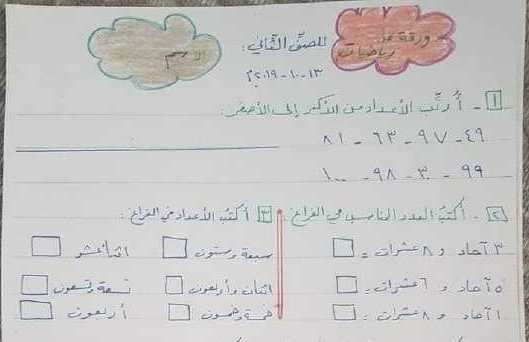 ورقة عمل رياضيات
للصف الثاني:
الاسم
١٣-١٠-٢٠١٩م
١ - أُرتّب الأعداد من الأكبر إلى الأصغر:
٤٩ - ٩٧ - ٦٣ - ٨١
٩٩ - ٣٠ - ٩٨ - ١٠٠
٢ - أكتب العدد المناسب في الفراغ:
٣ آحاد و ٨ عشرات =
٥ آحاد و ٦ عشرات =
١ آحاد و ٨ عشرات =
٣ أكتب الأعداد في الفراغ:
سبعة وستون اثنا عشر
اثنان وأربعون تسعة وتسعون
خمسة وخمسون أربعون